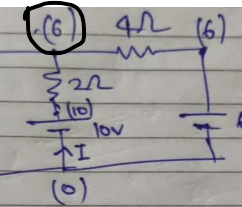 (6) 4Ω (6)
2Ω
(10)
10V
I
(0)